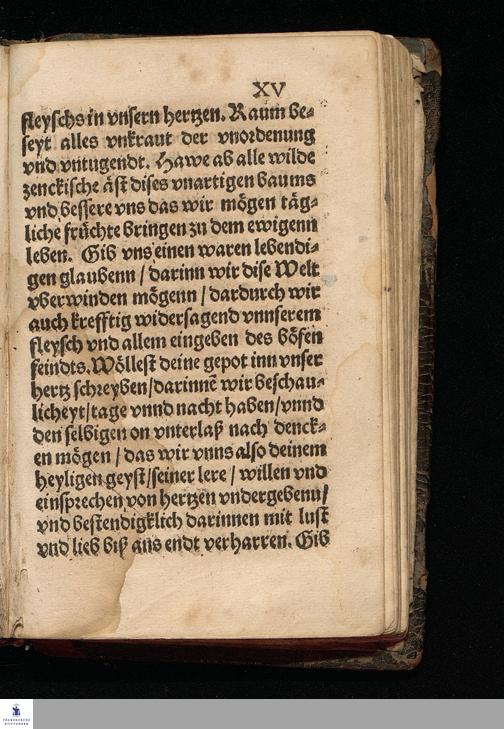 XV
fleyschs in vnsern hertzen. Raum be-
seyt alles vnkraut der vnordenung
vnd vntugendt. Hawe ab alle wilde
zenckische äst dises vnartigen baums
vnd bessere vns das wir mögen täg-
liche früchte bringen zu dem ewigenn
leben. Gib vns einen waren lebendi-
gen glaubenn / darinn wir dise Welt
vberwinden mögenn / dardurch wir
auch krefftig widersagend vnnserem
fleysch vnd allem eingeben des bösen
feindts. Wöllest deine gepot inn vnser
hertz schreyben / darinnē wir beschau-
licheyt / tage vnnd nacht haben / vnnd
den selbigen on vnterlaß nach denck-
en mögen / das wir vnns also deinem
heyligen geyst / seiner lere / willen vnd
einsprechen von hertzen vndergebenn /
vnd bestendigklich darinnen mit lust
vnd lieb biß ans endt verharren. Gib
FRANCKESCHE
STIFTUNGEN